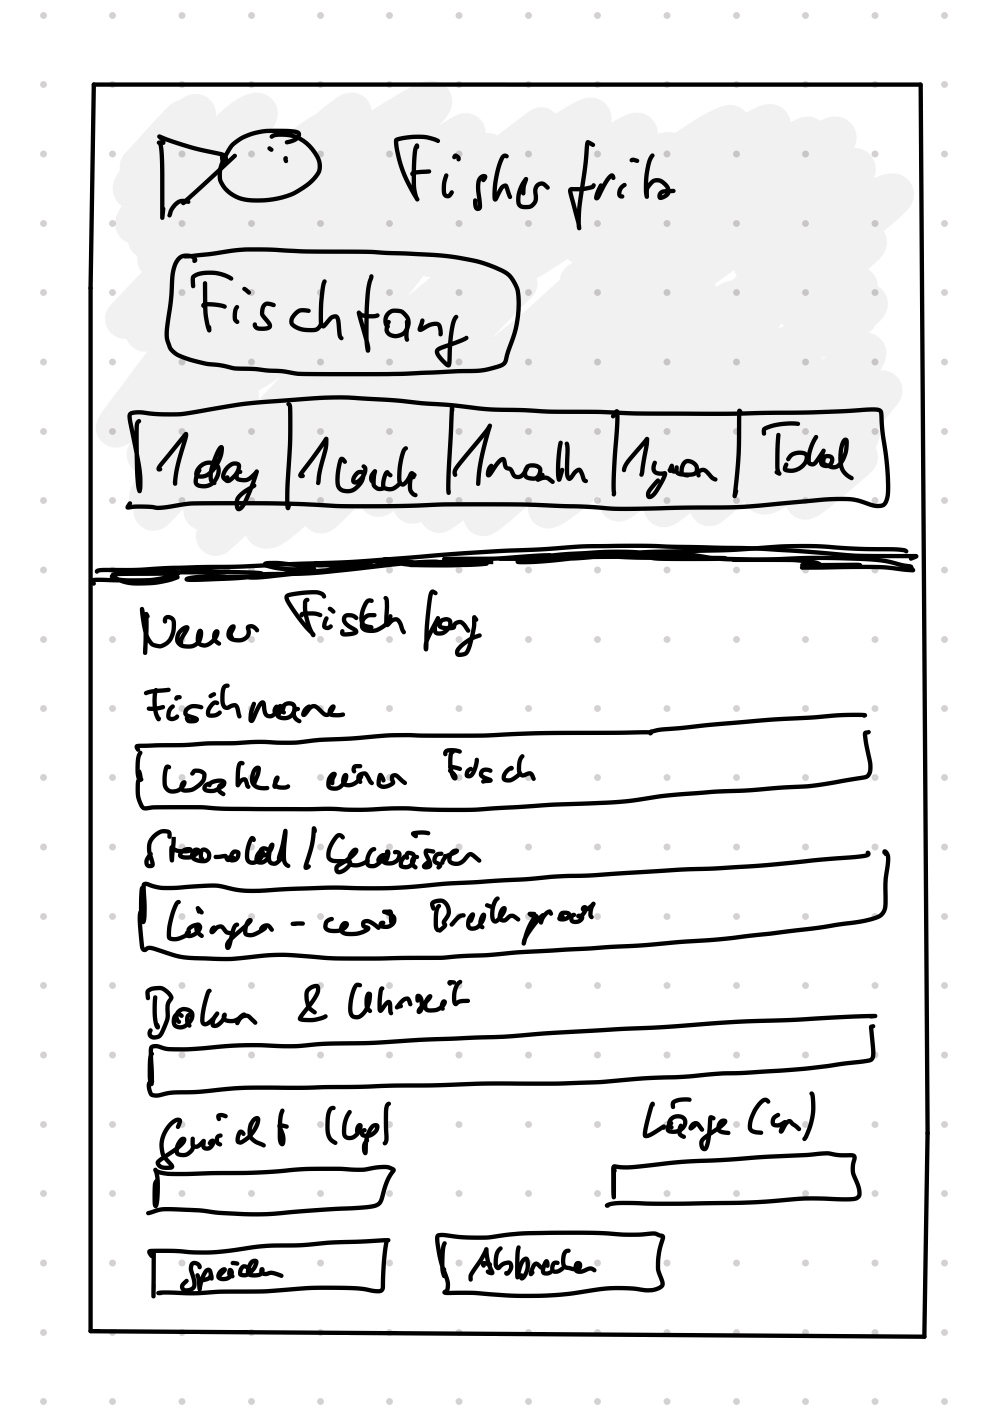 Fisher fritz
Fischfang
1 day 1 week 1 month 1 year Total
Neuer Fischfang
Fischname
Wähle einen Fisch
/ Gewässer
Längen - und Breitengrad
Datum & Uhrzeit
Gewicht (kg) Länge (cm)
Speichern Abbrechen